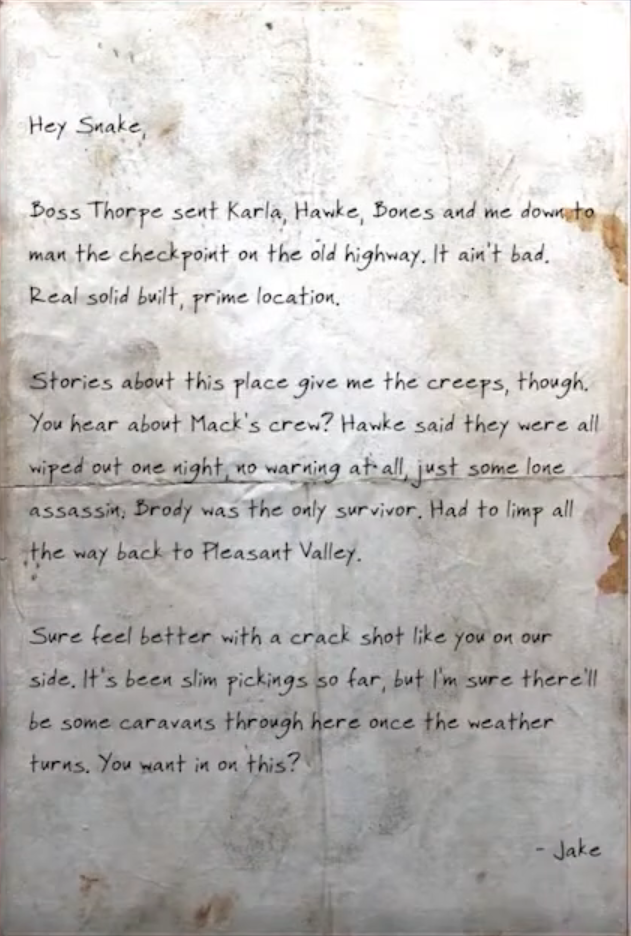 Hey Snake,
Boss Thorpe sent Karla, Hawke, Bones and me down to
man the checkpoint on the old highway. It ain't bad.
Real solid built, prime location.
Stories about this place give me the creeps, though.
You hear about Mack's crew? Hawke said they were all
wiped out one night, no warning at all, just some lone
assassin. Brody was the only survivor. Had to limp all
the way back to Pleasant Valley.
Sure feel better with a crack shot like you on our
side. It's been slim pickings so far, but I'm sure there'll
be some caravans through here once the weather
turns. You want in on this?
- Jake